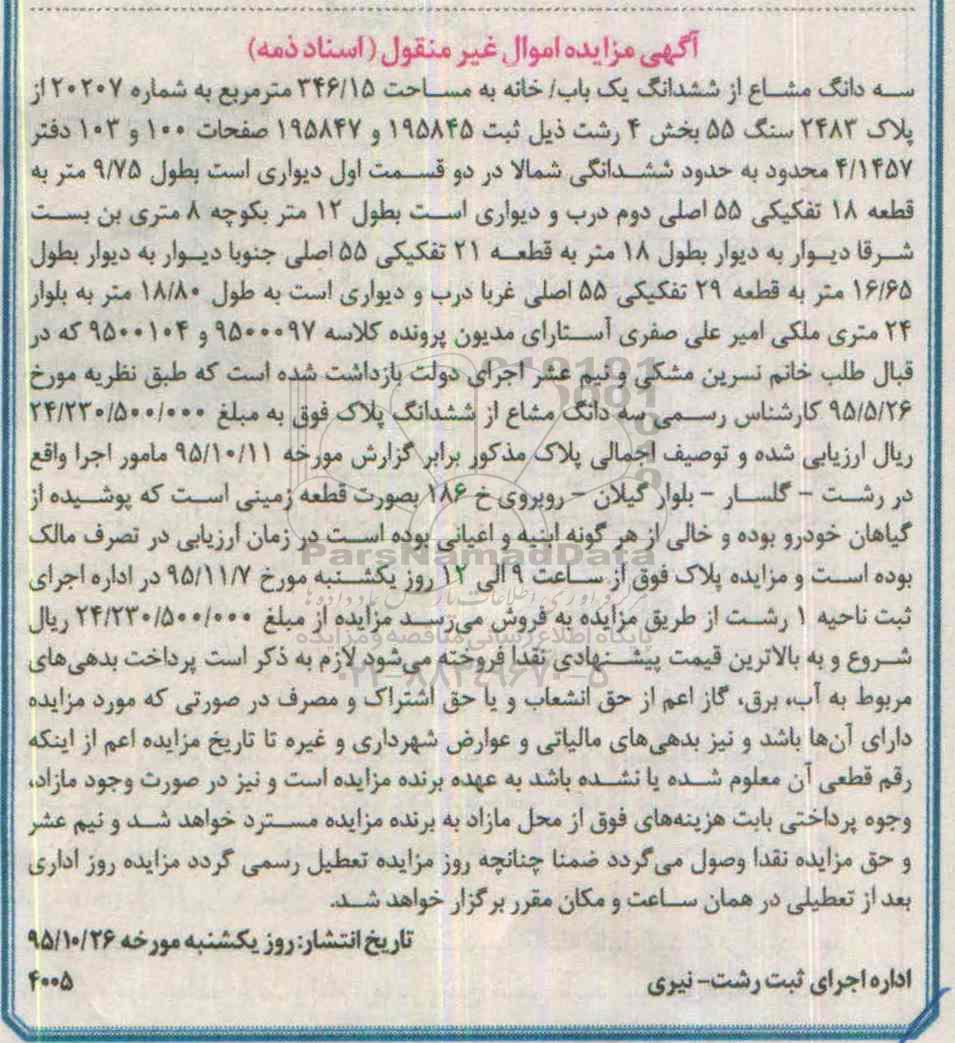 آگهی مزایده اموال غیر منقول (اسناد ذمه)
سه دانگ مشاع از ششدانگ یک باب/ خانه به مساحت ۳۴۶/۱۵ مترمربع به شماره ۲۰۲۰۷ از
پلاک ۲۴۸۳ سنگ ۵۵ بخش ۴ رشت ذیل ثبت ۱۹۵۸۴۵ و ۱۹۵۸۴۷ صفحات ۱۰۰ و ۱۰۳ دفتر
۴/۱۴۵۷ محدود به حدود ششدانگی شمالا در دو قسمت اول دیواری است بطول ۹/۷۵ متر به
قطعه ۱۸ تفکیکی ۵۵ اصلی دوم درب و دیواری است بطول ۱۲ متر بکوچه ۸ متری بن بست
شرقا دیوار به دیوار بطول ۱۸ متر به قطعه ۲۱ تفکیکی ۵۵ اصلی جنوبا دیوار به دیوار بطول
۱۶/۶۵ متر به قطعه ۲۹ تفکیکی ۵۵ اصلی غربا درب و دیواری است به طول ۱۸/۸۰ متر به بلوار
۲۴ متری ملکی امیر علی صفری آستارای مدیون پرونده کلاسه ۹۵۰۰۰۹۷ و ۹۵۰۰۱۰۴ که در
قبال طلب خانم نسرین مشکی و نیم عشر اجرای دولت بازداشت شده است که طبق نظریه مورخ
۹۵/۵/۲۶ کارشناس رسمی سه دانگ مشاع از ششدانگ پلاک فوق به مبلغ ۲۴/۲۳۰/۵۰۰/۰۰۰
ریال ارزیابی شده و توصیف اجمالی پلاک مذکور برابر گزارش مورخه ۹۵/۱۰/۱۱ مامور اجرا واقع
در رشت - گلسار - بلوار گیلان - روبروی خ ۱۸۶ بصورت قطعه زمینی است که پوشیده از
گیاهان خودرو بوده و خالی از هر گونه ابنیه و اعیانی بوده است در زمان ارزیابی در تصرف مالک
بوده است و مزایده پلاک فوق از ساعت ۹ الی ۱۲ روز یکشنبه مورخ ۹۵/۱۱/۷ در اداره اجرای
ثبت ناحیه ۱ رشت از طریق مزایده به فروش می‌رسد مزایده از مبلغ ۲۴/۲۳۰/۵۰۰/۰۰۰ ریال
شروع و به بالاترین قیمت پیشنهادی نقدا فروخته می‌شود لازم به ذکر است پرداخت بدهی‌های
مربوط به آب، برق، گاز اعم از حق انشعاب و یا حق اشتراک و مصرف در صورتی که مورد مزایده
دارای آن‌ها باشد و نیز بدهی‌های مالیاتی و عوارض شهرداری و غیره تا تاریخ مزایده اعم از اینکه
رقم قطعی آن معلوم شده یا نشده باشد به عهده برنده مزایده است و نیز در صورت وجود مازاد،
وجوه پرداختی بابت هزینه‌های فوق از محل مازاد به برنده مزایده مسترد خواهد شد و نیم عشر
و حق مزایده نقدا وصول می‌گردد ضمنا چنانچه روز مزایده تعطیل رسمی گردد مزایده روز اداری
بعد از تعطیلی در همان ساعت و مکان مقرر برگزار خواهد شد.
تاریخ انتشار: روز یکشنبه مورخه ۹۵/۱۰/۲۶
اداره اجرای ثبت رشت- نیری ۴۰۰۵
ParsNamadData
پایگاه اطلاع رسانی مناقصه و مزایده
۰۲۱-۸۸۳۴۹۶۷۰-۵